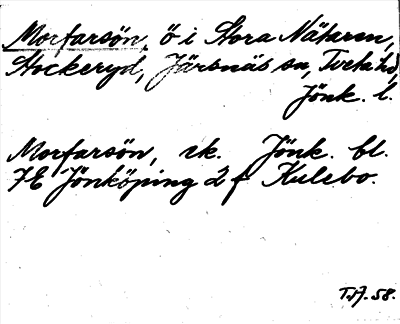 Morfarsön, ö i Stora Nätaren,
Stockeryd, Järsnäs sn, Tveta hd,
Jönk. l.
Morfarsön, ek. Jönk. bl.
7E Jönköping 2 f Kulebo.
T.A. 58.